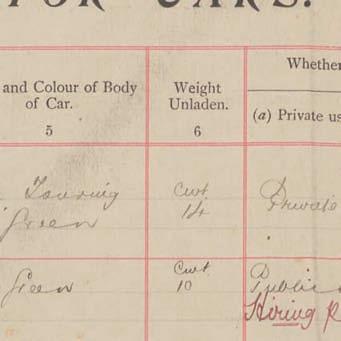 FOR CARS.
and Colour of Body
of Car.
5
Weight
Unladen.
6
Whether
(a) Private us
Touring
Green
Cwt
14
Private
Green
Cwt
10
Public
Hiring